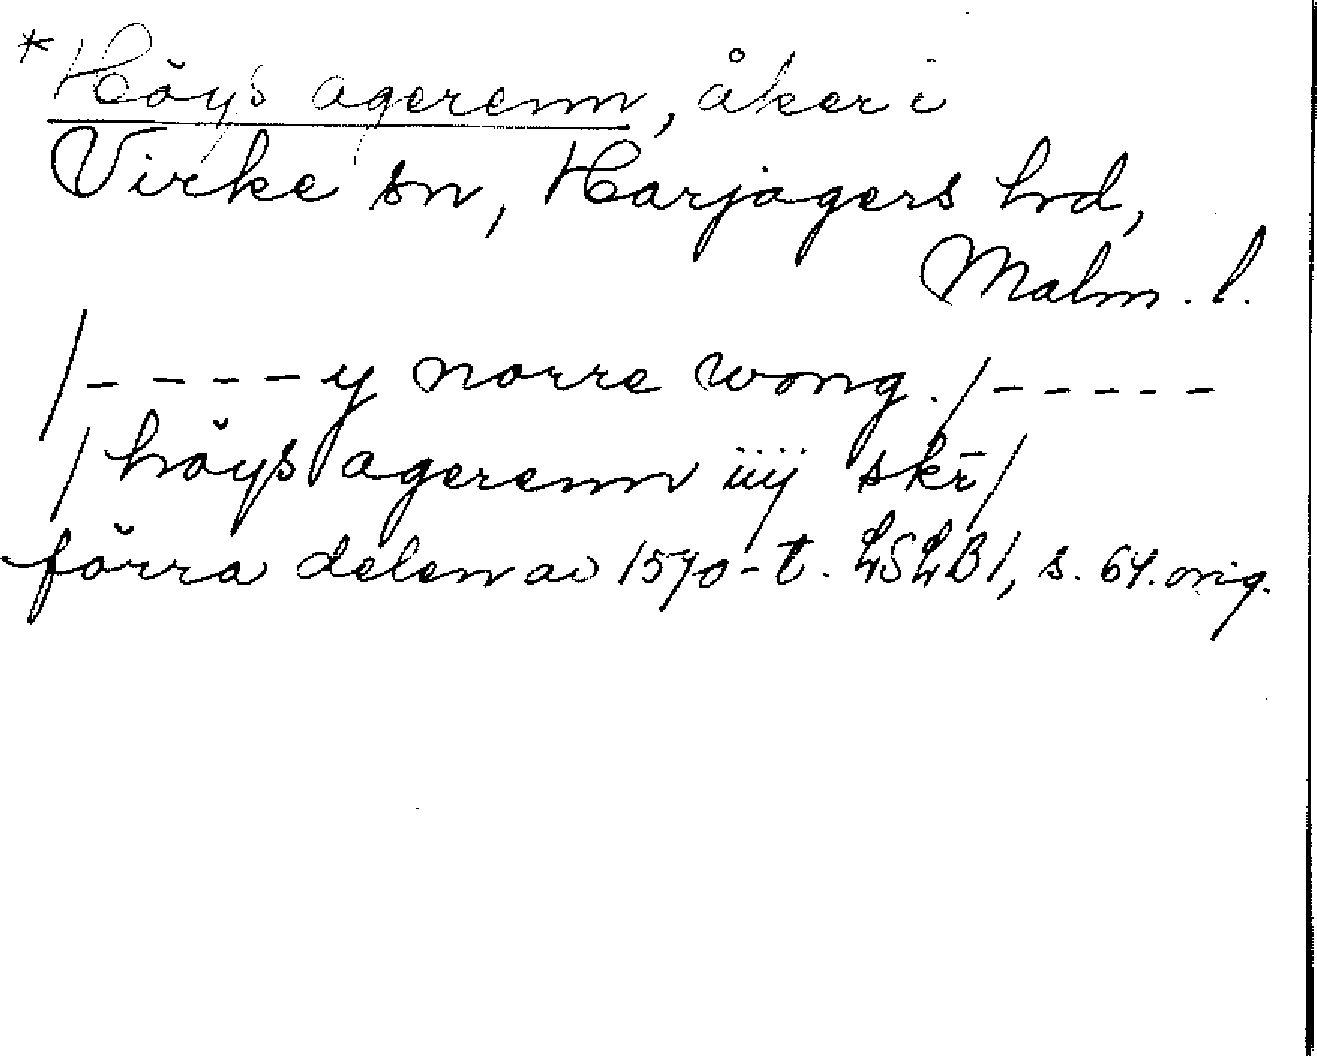 *Höys agerenn, åker i
Virke sn, Harjagers hd,
Malm. l.
/- - - - y norre wong. /- - - - -
/ höys agerenn iiij skr̄ /
förra delen av 1570-t. LSLB1, s. 64. orig.